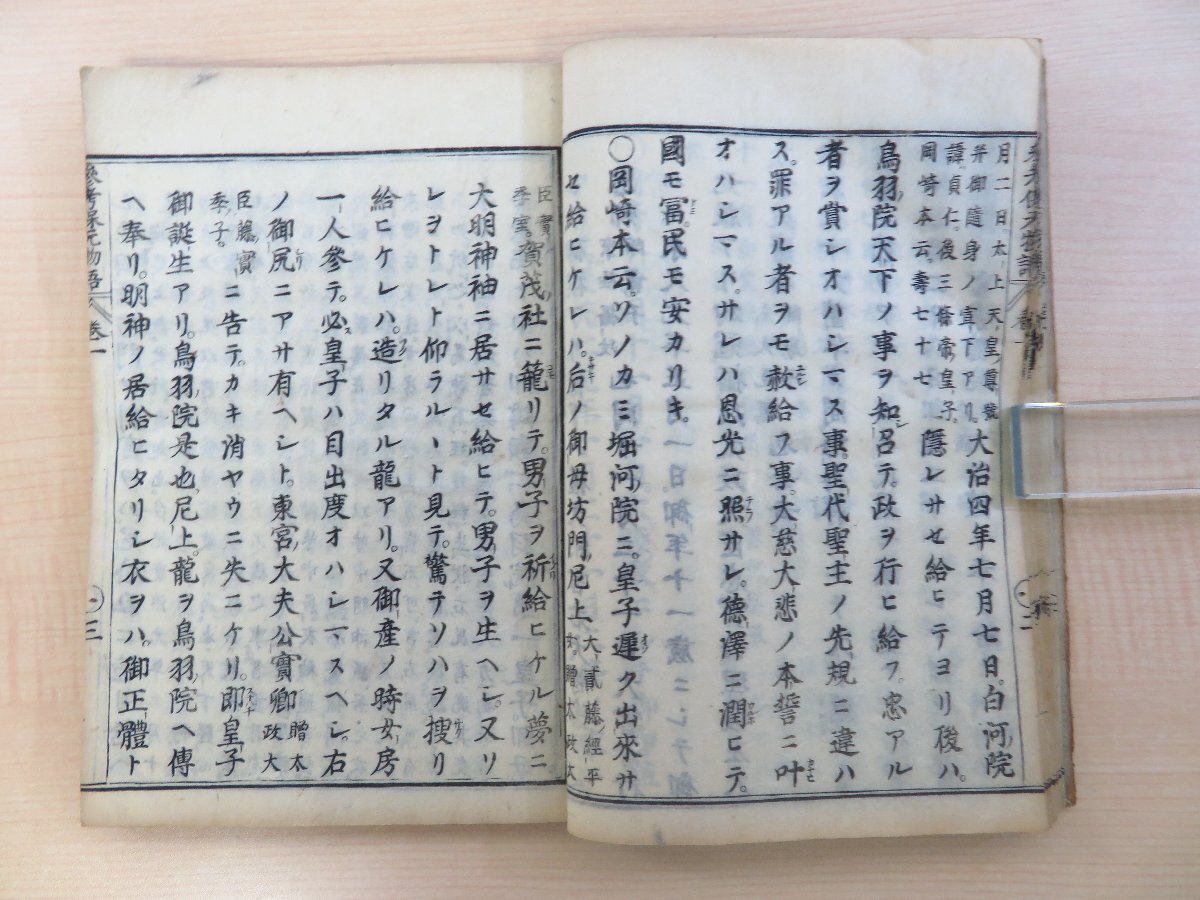 月二日。太上天皇尊號
并御隨身ノ宣下アリ。大治四年七月七日。白河院
諱貞仁。後三條帝皇子。
岡崎本云。壽七十七 隱レサセ給ヒテヨリ後ハ。
鳥羽院天下ノ事ヲ知呂テ。政ヲ行ヒ給フ。忠アル
者ヲ賞シオハシマス事。聖代聖主ノ先規ニ違ハ
ス。罪アル者ヲモ赦給フ事。大慈大悲ノ本誓ニ叶
オハシマス。サレハ恩光ニ照サレ。德澤ニ潤ヒテ。
國モ冨。民モ安カリキ。
〇岡崎本云。ソノカミ堀河院ニ。皇子遲ク出來サ
セ給ヒケレハ。后ノ御母坊門尼上 大貳藤經平
女。贈太政大
臣實
季室。 賀茂社ニ籠リテ。男子ヲ祈給ヒケル夢ニ
大明神袖ニ居サセ給ヒテ。男子ヲ生ヘシ。又ソ
レヲトレト仰ラルヽト見テ。驚テソハヲ搜リ
給ヒケレハ。造リタル龍アリ。又御產ノ時。女房
一人參テ。必皇子ハ目出度オハシマスヘシ。右
ノ御尻ニアサ有ヘシト。東宮大夫公實卿 贈太
政大
臣藤實
季子。 ニ告テ。カキ消ヤウニ失ニケリ。即皇子
御誕生アリ。鳥羽院是也。尼上。龍ヲ鳥羽院ヘ傳
ヘ奉リ。明神ノ居給ヒタリシ衣ヲハ。御正體ト
參考保元物語 卷一
三
二